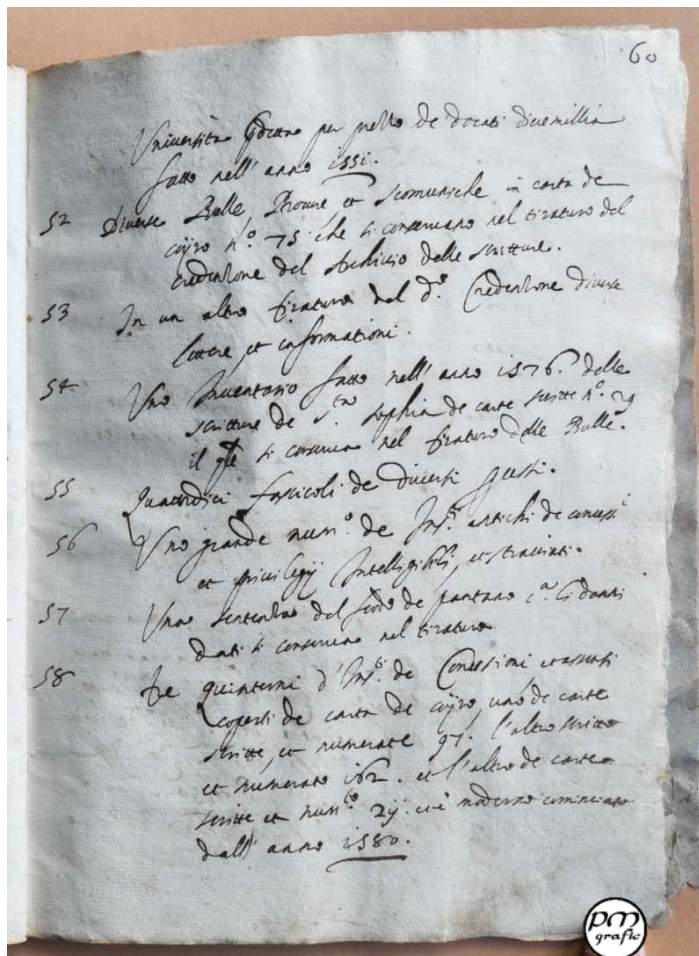 60
Università per de docati duemillia
fatto nell' anno 1551.
52 Diverse Bulle, Procure et scomuniche in carta de
cojro n.º 75 che si conservano nel tiraturo del
credenzone del Archivio delle scritture.
53 In un altro tiraturo del d.º Credenzone diverse
lettere et informationi.
54 Uno Inventario fatto nell' anno 1576. delle
scritture de S.ta Sophia de carte scritte n.º 29
il si conserva nel tiraturo delle Bulle.
55 Quattordici fascicoli de diversi
56 Uno grande num.º de antichi de
et privilegij Intelligibili, et stracciati.
57 Una sentenza del feudo de pantano li danni
dati si conserva nel tiraturo
58 Tre quinterni d' de Concessioni
coperti de carta de cojro, uno de carte
scritte, et numerate 97. l'altro scritto
et numerato 162. et l'altro de carte
scritte et et è moderno cominciato
dall' anno 1580.
pm
grafic